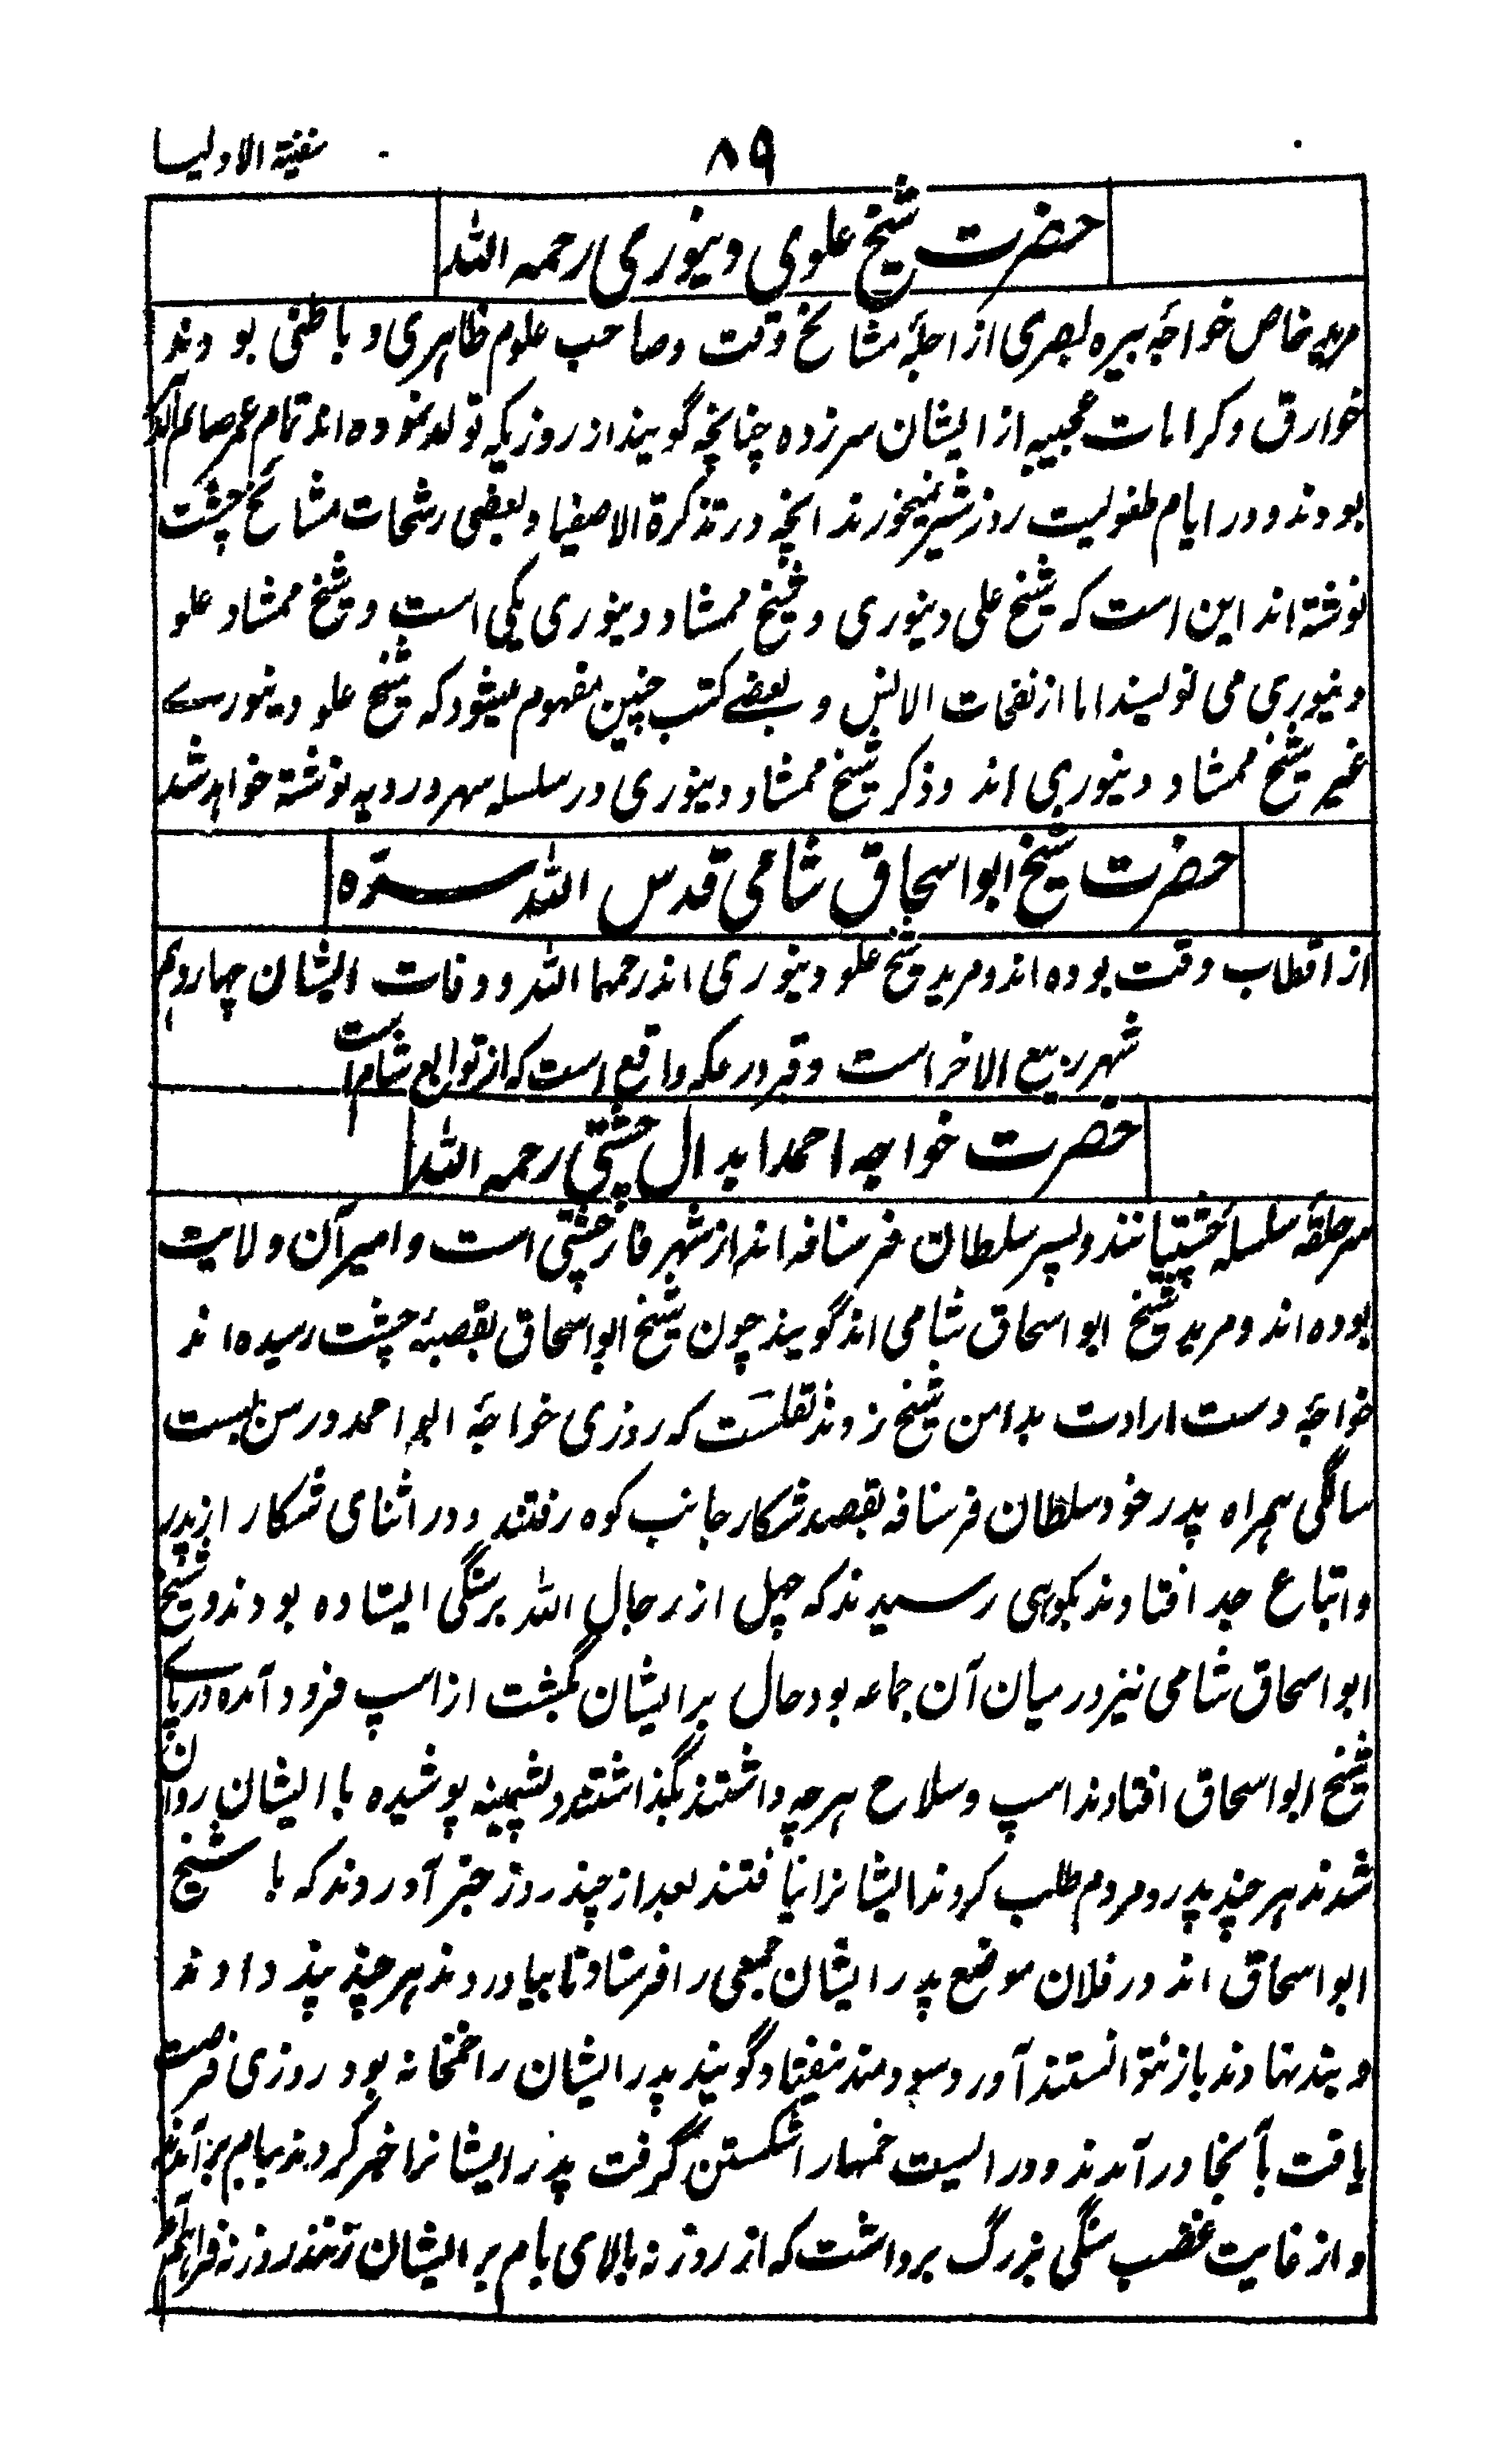 ۸۹
سفینة الاولیا
حضرت شیخ علوی دینوری رحمه الله
مرید خاص خواجهٔ هبیره بصری از اجلهٔ مشائخ وقت و صاحب علوم ظاهری و باطنی بودند
خوارق و کرامات عجیبه از ایشان سرزده چنانچه گویند از روزیکه تولد نموده اند تمام عمر صائم
بودند و در ایام طفولیت روز شیر نمیخورند انچه در تذکرة الاصفیا و بعضی رشحات مشائخ چشت
نوشته اند این است که شیخ علی دینوری و شیخ ممشاد دینوری یکی است و شیخ ممشاد علو
دینوری می نویسند اما از نفحات الانس و بعضے کتب چنین مفهوم میشود که شیخ علو دینورے
غیر شیخ ممشاد دینوری اند و ذکر شیخ ممشاد دینوری در سلسله سهروردیه نوشته خواهد شد
حضرت شیخ ابو اسحاق شامی قدس الله سرّه
از اقطاب وقت بوده اند و مرید شیخ علو دینوری اند رحمهما الله و وفات ایشان چهاردهم
شهر ربیع الاخر است و قبر در عکه واقع است که از توابع شام است
حضرت خواجه احمد ابدال چشتی رحمه الله
سر حلقهٔ سلسلهٔ چشتیانند و پسر سلطان فرسنافه اند از شرفاء چشتی است و امیر آن ولایت
بوده اند و مرید شیخ ابو اسحاق شامی اند گویند چون شیخ ابو اسحاق بقصبهٔ چشت رسیده اند
خواجهٔ دست ارادت بدامن شیخ زدند نقلست که روزی خواجهٔ ابو احمد در سن بیست
سالگی همراه پدر خود سلطان فرسنافه بقصد شکار جانب کوه رفتند و در اثنای شکار از پدر
و اتباع جدا افتادند بکوهی رسیدند که چهل از رجال الله بر سنگی ایستاده بودند و شیخ
ابو اسحاق شامی نیز در میان آن جماعه بود حال بر ایشان گبشت از اسپ فرود آمده در پاے
شیخ ابو اسحاق افتادند اسپ و سلاح هر چه داشتند بگذاشتند و پشمینه پوشیده با ایشان روان
شدند هر چند پدر و مردم طلب کردند ایشانرا نیافتند بعد از چند روز خبر آوردند که با شیخ
ابو اسحاق اند در فلان موضع پدر ایشان جمعی را فرستاد تا بیاوردند هر چند پند دادند
و بند نهادند باز نتوانستند آورد و سودمند نیفتاد گویند پدر ایشان را خمخانه بود روزی فرصت
یافت بآنجا در آمدند و در البست خمها را شکستن گرفت پدر ایشانرا خبر کردند ببام بر آمدند
و از غایت غضب سنگی بزرگ برداشت که از روزنه بالای بام بر ایشان زنند روزنه فراهم